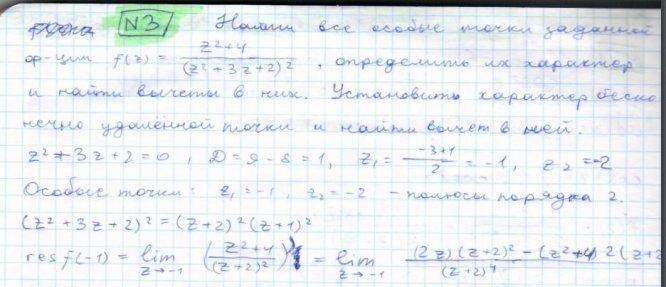 N3 Найти все особые точки заданной
ф-ции f(z) = (z²+4)/(z²+3z+2)², определить их характер
и найти вычеты в них. Установить характер беско
нечно удалённой точки и найти вычет в ней.
z²+3z+2=0, D=9-8=1, z₁=(-3+1)/2=-1, z₂=-2
Особые точки: z₁=-1, z₂=-2 - полюсы порядка 2.
(z²+3z+2)²=(z+2)²(z+1)²
res f(-1) = lim z→-1 ((z²+4)/(z+2)²)' = lim z→-1 ((2z)(z+2)²-(z²+4)2(z+2/(z+2)⁴